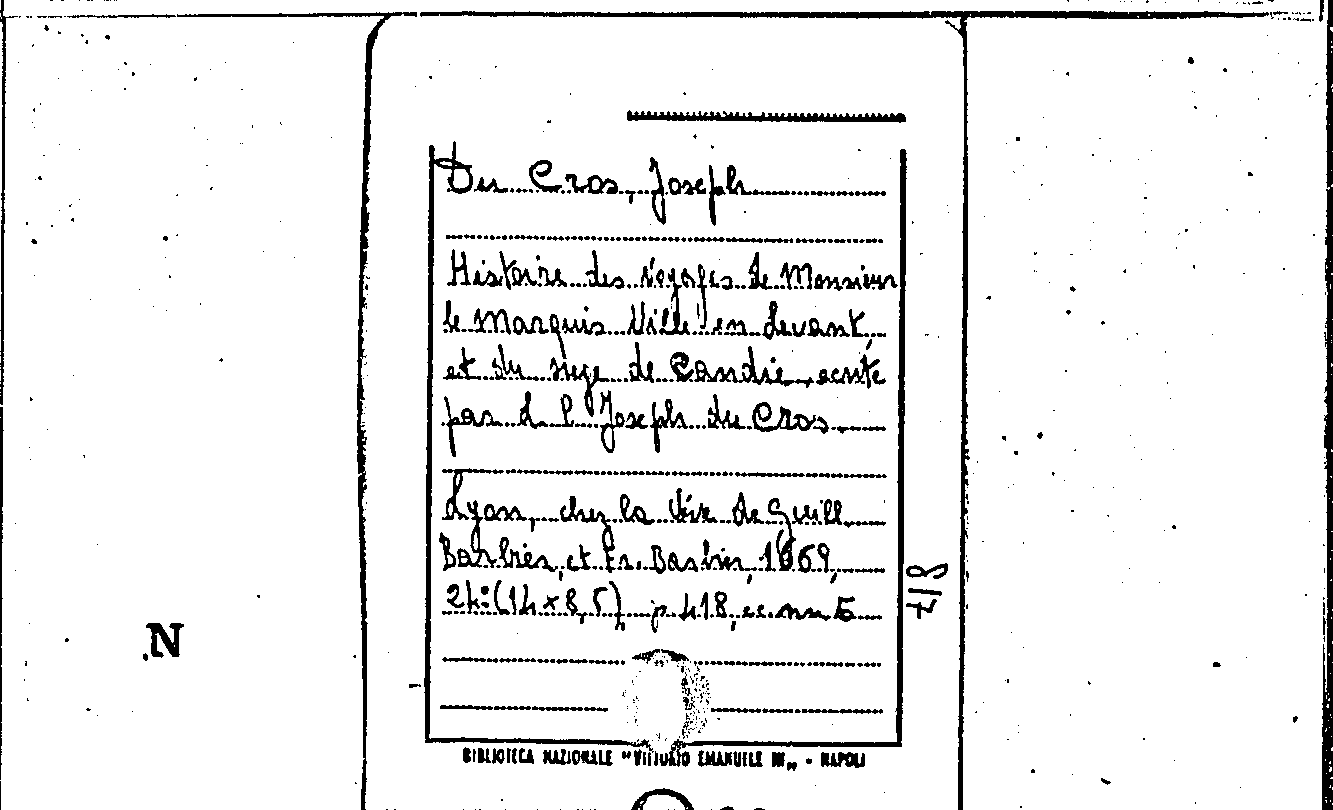 Du Cros, Joseph
Histoire des Voyages de Monsieur
le Marquis Ville en Levant,
et du siege de Candie, ecrite
par d. l. Joseph du Cros.
Lyon, chez la Vve de Guill.
Barbier, et Fr. Barbier, 1669,
24:(14×8,5), p 418, cc. nn 5
7/8
N
BIBLIOTECA NAZIONALE "VITTORIO EMANUELE III„ - NAPOLI